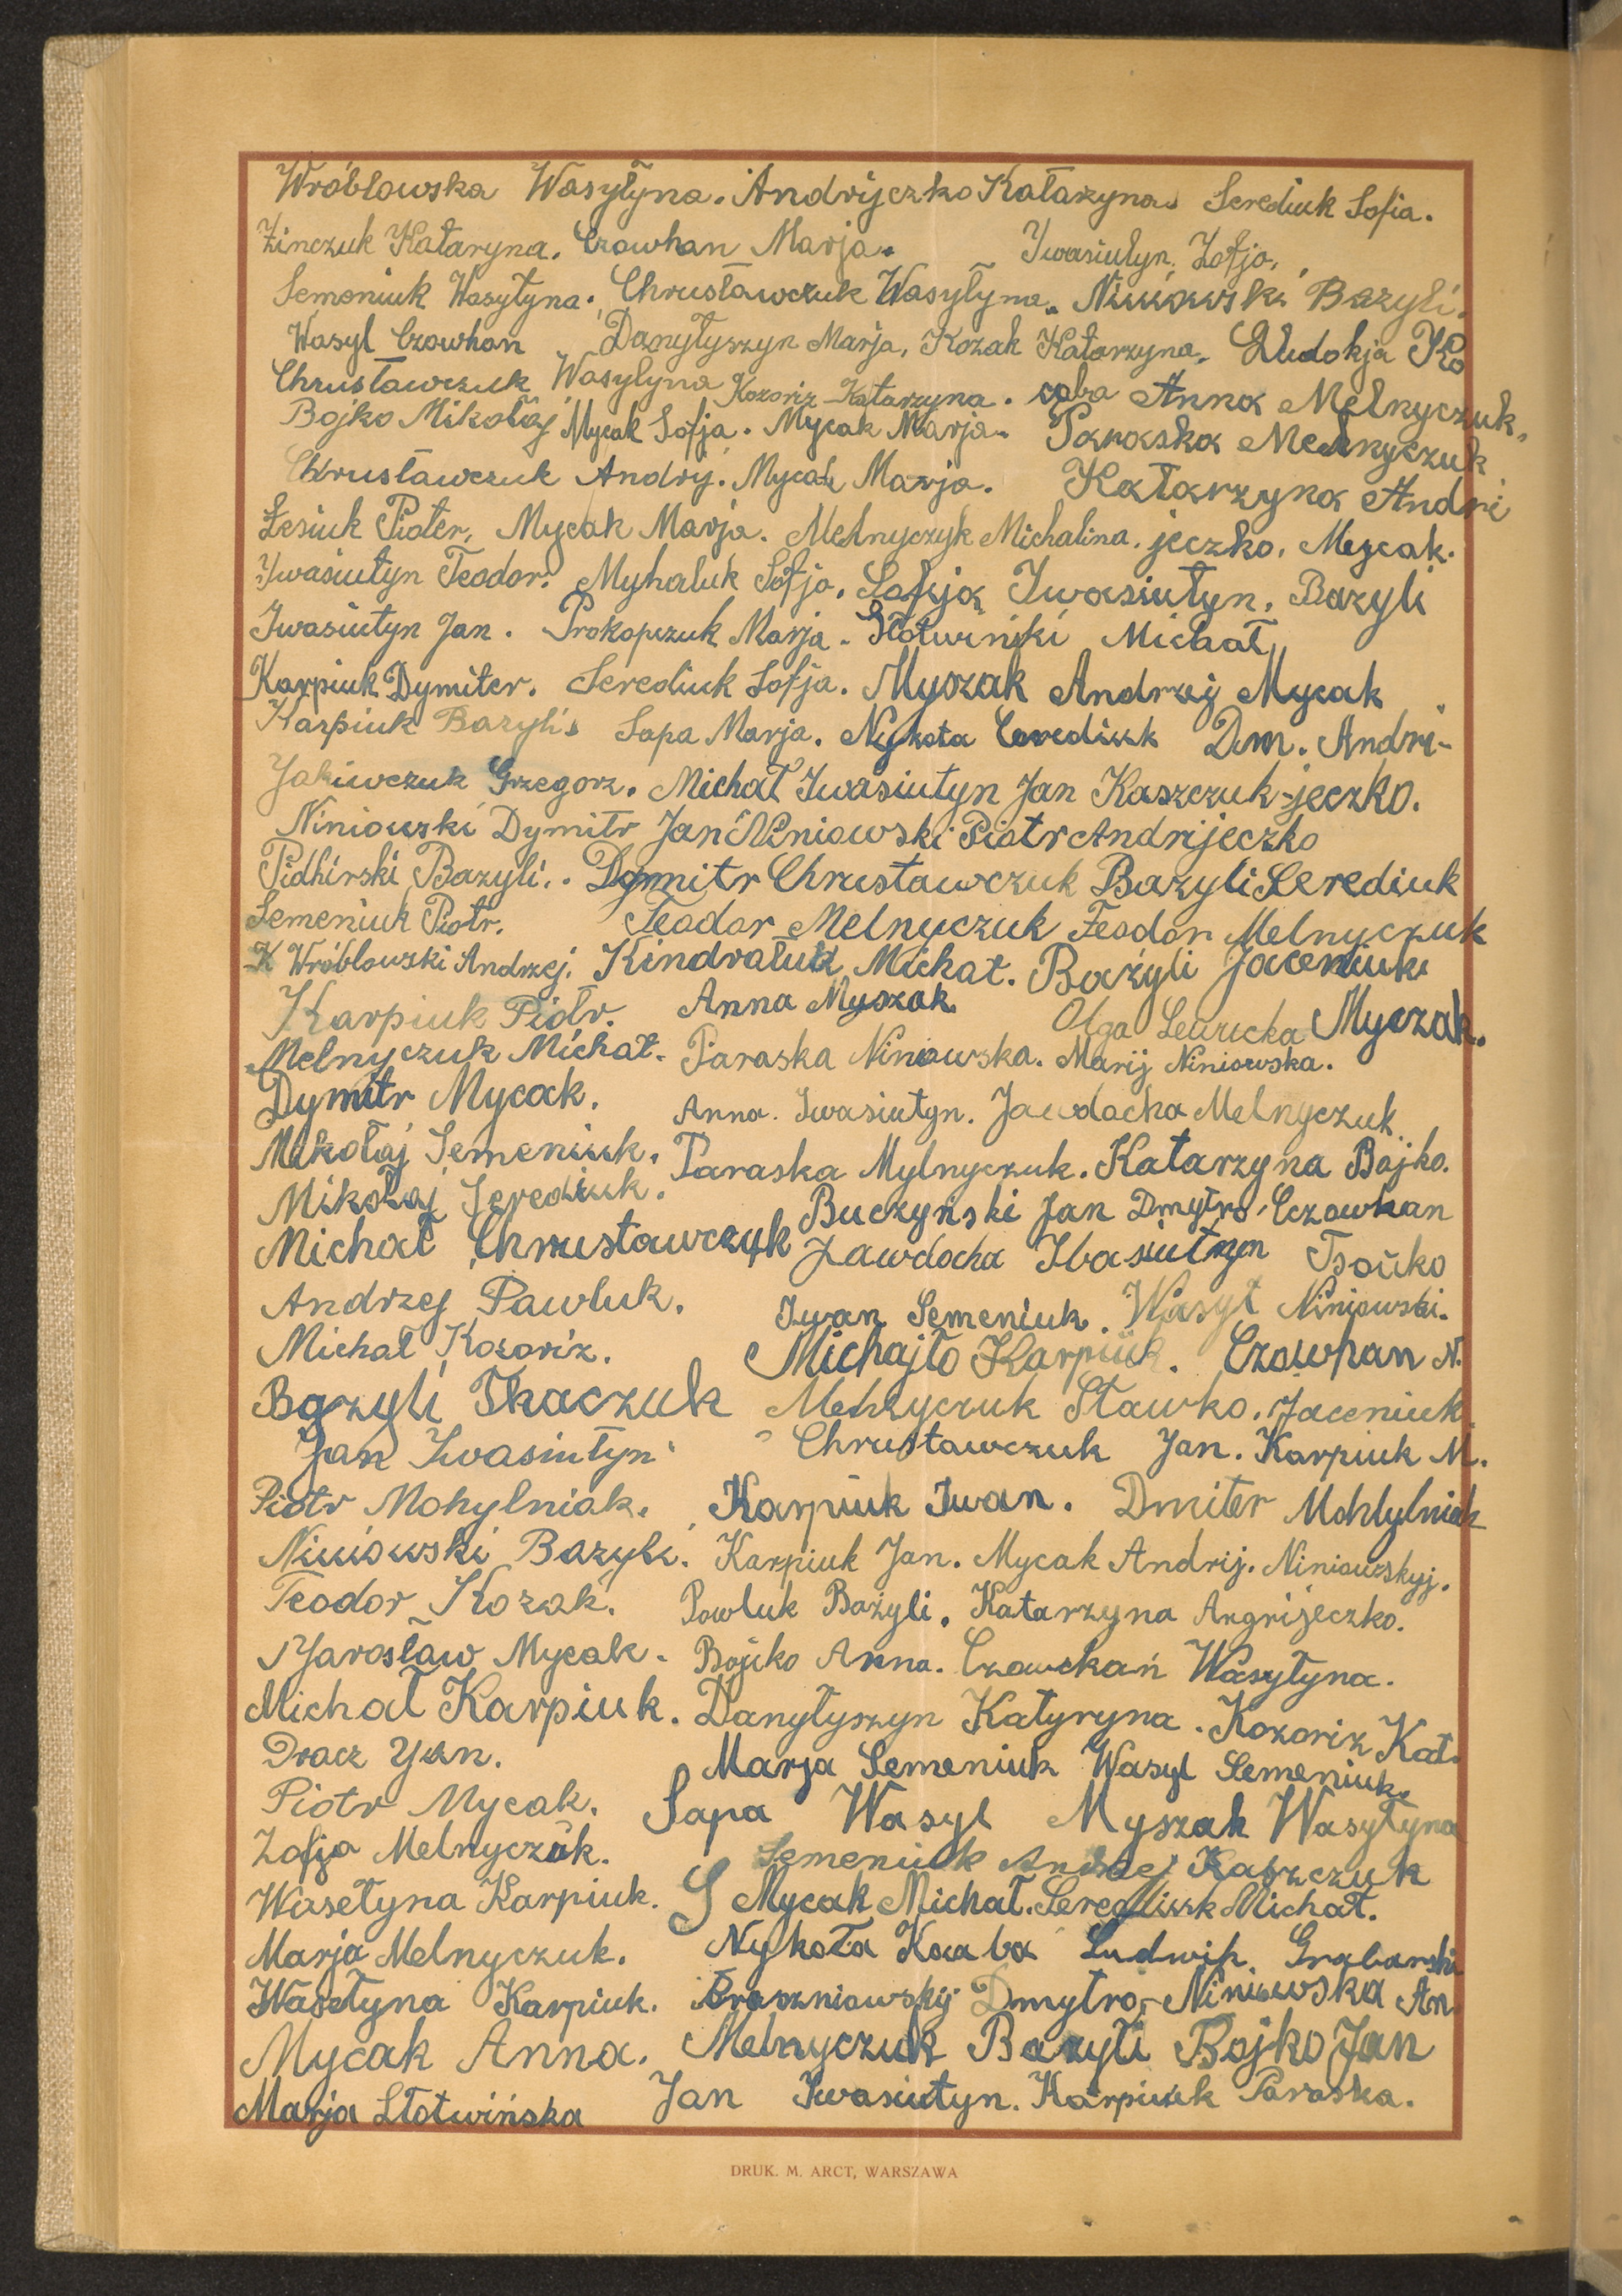 Wróblowska Wasyłyna. Andrijczko Katarzyna. Serediuk Sofia.
Zinczuk Kataryna. Czowhan Marja. Iwasiutyn Zofja.
Semeniuk Wasyłyna. Chrustawczuk Wasyłyna. Niniowski Bazyli.
Wasyl Czowhan Danyłyszyn Marja, Kozak Katarzyna, Eudokja Ko
Chrustawczuk Wasyłyna Kozoriz Katarzyna. caba Anna Melnyczuk.
Bojko Mikołaj Mycak Sofja. Mycak Marja. Paraska Melnyczuk
Chrustawczuk Andry. Mycak Marja. Katarzyna Andri
Łesiuk Pioter. Mycak Marja. Melnyczyk Michalina. jeczko. Mycak.
Iwasiutyn Teodor. Myhaluk Sofja. Sofija Iwasiutyn. Bazyli
Iwasiutyn Jan. Prokopczuk Marja. Słotwiński Michał
Karpiuk Dymiter. Serediuk Sofja. Myszak Andrzej Mycak
Karpiuk Bazyli. Sapa Marja. Nykoła Serediuk Dm. Andri-
Jakiwczuk Grzegorz. Michał Iwasiutyn Jan Kaszczuk -jeczko.
Niniowski Dymitr Jan Niniowski Piotr Andrijeczko
Pidhirski Bazyli. Dymitr Chrustawczuk Bazyli Serediuk
Semeniuk Piotr. Teodor Melnyczuk Feodor Melnyczuk
Wróblowski Andrzej. Kindratuk Michał. Bazyli Jaceniuk
Karpiuk Piotr. Anna Myszak Olga Lewicka Myczak.
Melnyczuk Michał. Paraska Niniowska. Marij Niniowska.
Dymitr Mycak. Anna Iwasiutyn. Jawdocha Melnyczuk
Mikołaj Semeniuk. Paraska Mylnyczuk. Katarzyna Bojko.
Mikołaj Serediuk. Buczyński Jan Dmytro Czowhan
Michał Chrustawczyk Jawdocha Iwasiutyn Bojko
Andrzej Pawluk. Iwan Semeniuk. Wasyl Niniowski.
Michał Kozoriz. Michajło Karpiuk. Czowhan N.
Bazyli Tkaczuk Melnyczuk Sławko. Jaceniuk
Jan Iwasiutyn Chrustawczuk Jan. Karpiuk M.
Piotr Mohylniak. Karpiuk Iwan. Dmiter Mohylniak
Niniowski Bazyli. Karpiuk Jan. Mycak Andrij. Niniowskyj.
Teodor Kozak. Pawluk Bazyli. Katarzyna Angrijeczko.
Yarosław Mycak. Bojko Anna. Czowchań Wasyłyna.
Michał Karpiuk. Danyłyszyn Katyryna. Kozoriz Kat.
Dracz Yan. Marja Semeniuk Wasyl Semeniuk.
Piotr Mycak. Sapa Wasyl Myszak Wasyłyna
Zofja Melnyczuk. Semeniuk Andrzej
Wasełyna Karpiuk. S Mycak Michał. Serediuk Michał.
Marja Melnyczuk. Nykoła Ludwik Grabarski
Wasełyna Karpiuk. Dmytro, Niniowska An.
Mycak Anna. Melnyczuk Bazyli Bojko Jan
Marja Słotwińska Jan Iwasiutyn. Karpiuk Paraska.
DRUK. M. ARCT, WARSZAWA